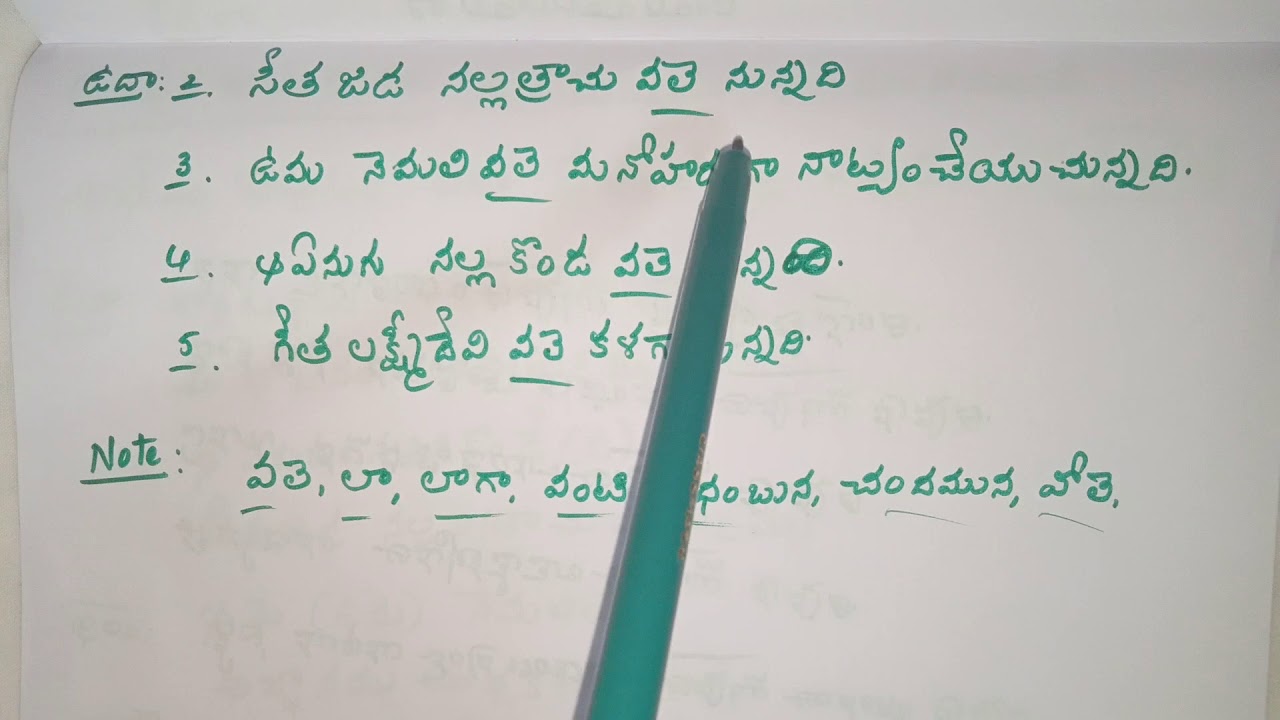 ఉదా: 2. సీత జడ నల్లత్రాచు వలె నున్నది
3. ఉమ నెమలి వలె నాట్యంచేయుచున్నది.
4. ఏనుగు నల్ల కొండ వలె
5. గీత లక్ష్మీదేవి వలె
Note: వలె, లా, లాగా, వంటి చందమున, పోలె,